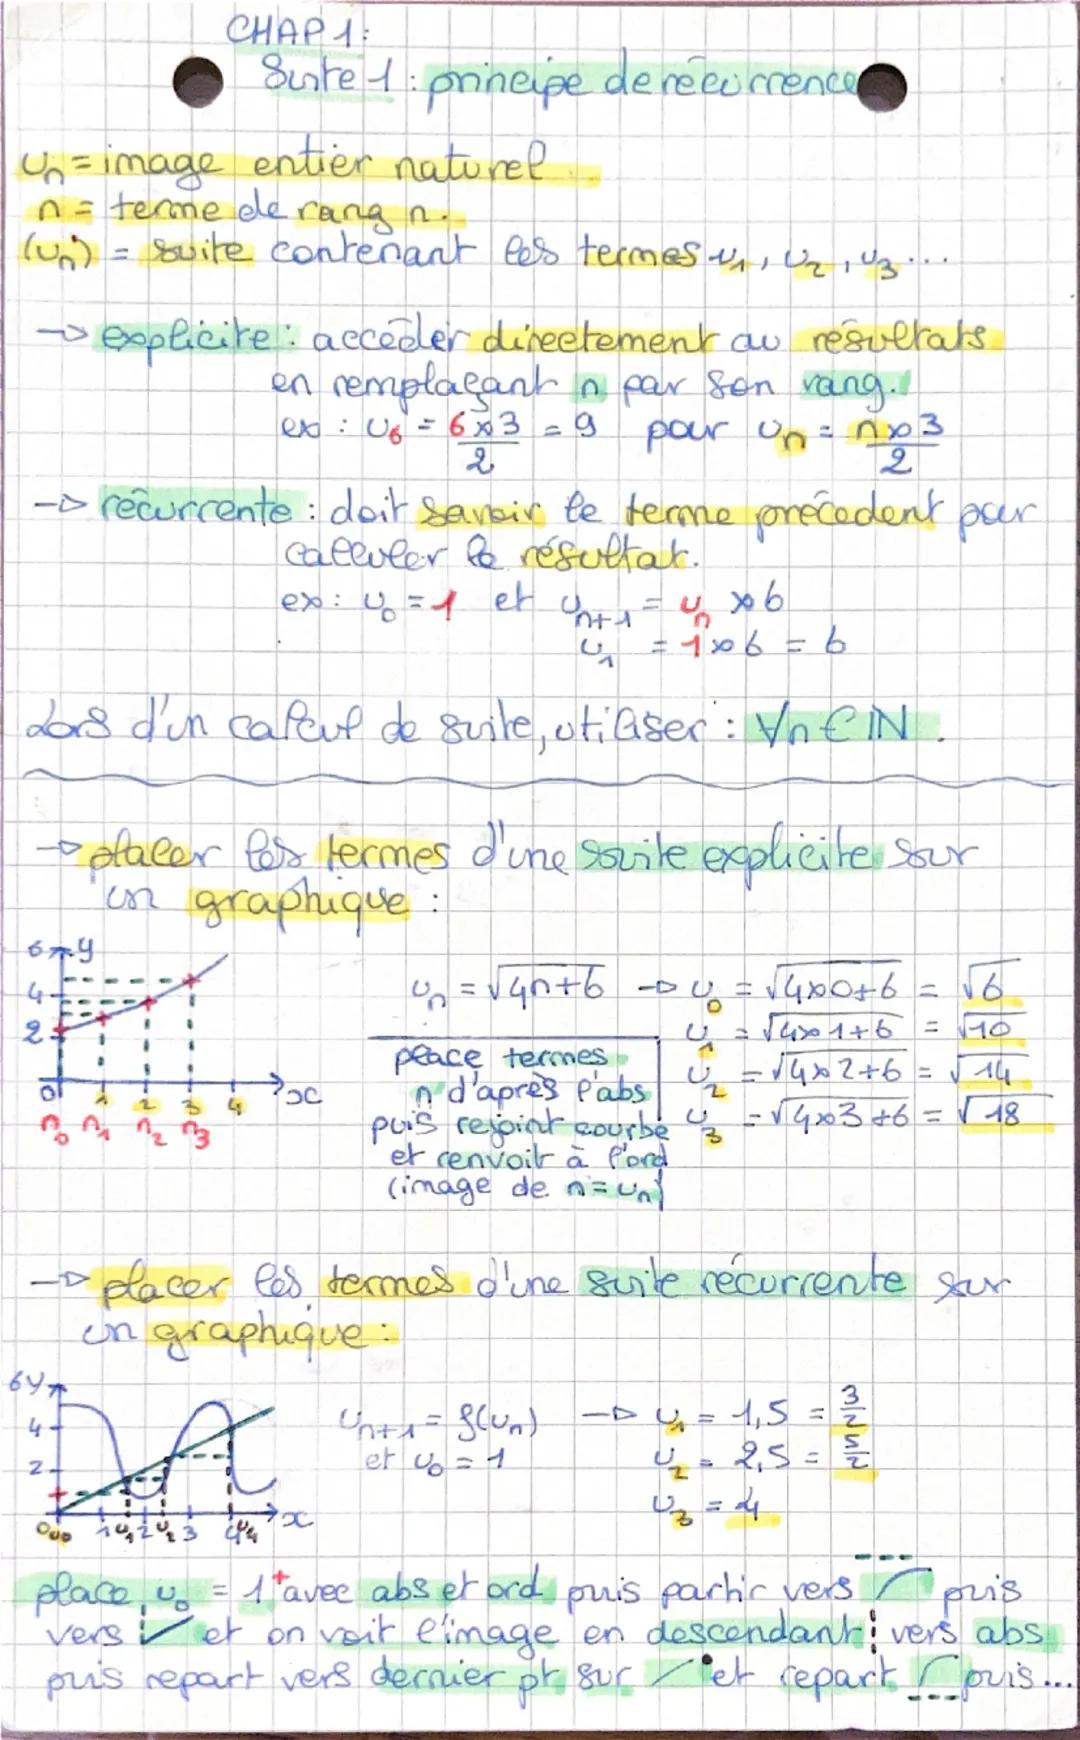 CHAP 1:
Suite 1 : principe de récurrence
Un = image entier naturel
n = terme de rang n.
(Un) = suite contenant les termes u1, U2, U3 ...
→ explicite : accéder directement au résultats
en remplaçant n par son rang.
ex : U6 = 6×3/2 = 9 pour Un = n×3/2
→ récurrente : doit savoir le terme précédent pour
calculer le résultat.
ex : U0 = 1 et Un+1 = Un × 6
U1 = 1×6 = 6
Lors d'un calcul de suite, utiliser : ∀n ∈ IN.
→ placer les termes d'une suite explicite sur
un graphique :
6 y
4
2
0 1 2 3 4 x
n0 n1 n2 n3
Un = √4n+6 → U0 = √4×0+6 = √6
U1 = √4×1+6 = √10
U2 = √4×2+6 = √14
U3 = √4×3+6 = √18
place termes
n d'après l'abs
puis rejoint courbe
et renvoit à l'ord
(image de n = Un)
→ placer les termes d'une suite récurrente sur
un graphique :
6 y
4
2
0 U0 1 U1 2 U2 3 4 U4 x
Un+1 = f(Un) → U1 = 1,5 = 3/2
et U0 = 1 U2 = 2,5 = 5/2
U3 = 4
place U0 = 1 + avec abs et ord puis partir vers puis
vers et on voit l'image en descendant vers abs
puis repart vers dernier pt sur et repart puis...